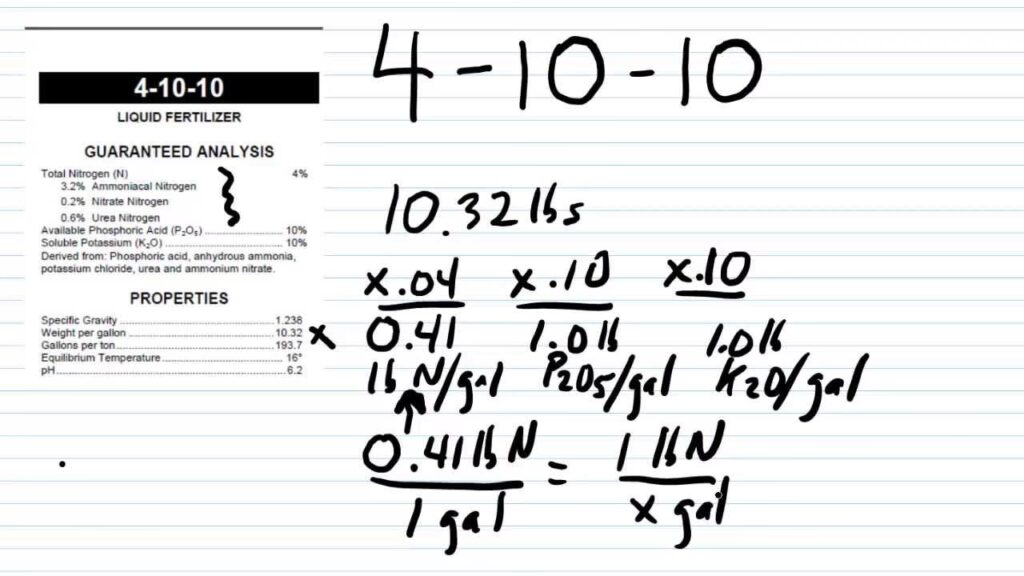 4-10-10
LIQUID FERTILIZER
GUARANTEED ANALYSIS
Total Nitrogen (N) 4%
3.2% Ammoniacal Nitrogen
0.2% Nitrate Nitrogen
0.6% Urea Nitrogen
Available Phosphoric Acid (P₂O₅) 10%
Soluble Potassium (K₂O) 10%
Derived from: Phosphoric acid, anhydrous ammonia,
potassium chloride, urea and ammonium nitrate.
PROPERTIES
Specific Gravity 1.238
Weight per gallon 10.32 x
Gallons per ton 193.7
Equilibrium Temperature 16°
pH 6.2
4-10-10
10.32 lbs
x.04 x.10 x.10
0.41 1.0 lb 1.0 lb
lb N/gal P2O5/gal K2O/gal
0.41 lb N = 1 lb N
1 gal x gal